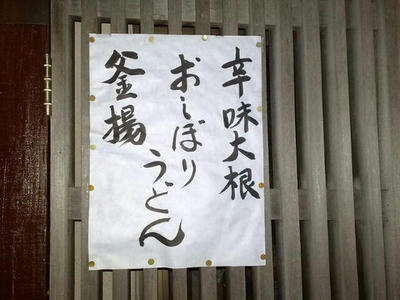 辛味大根
おしぼりうどん
釜揚